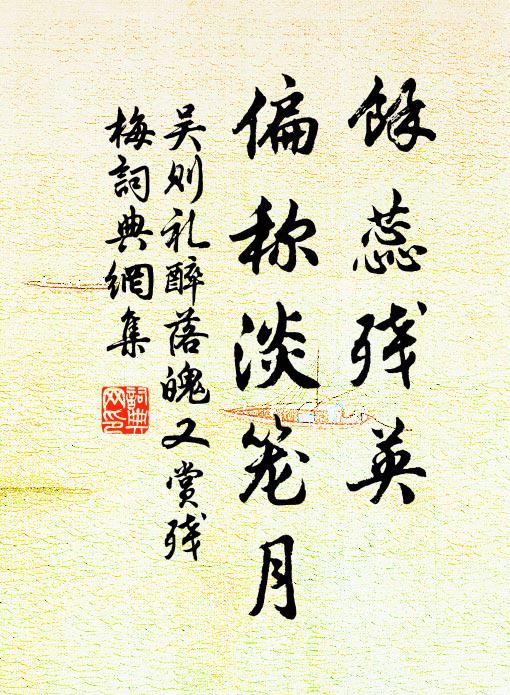 餘蕊残英
偏称淡笼月
吴则礼醉落魄又赏残
梅词典網集
詞典
网印